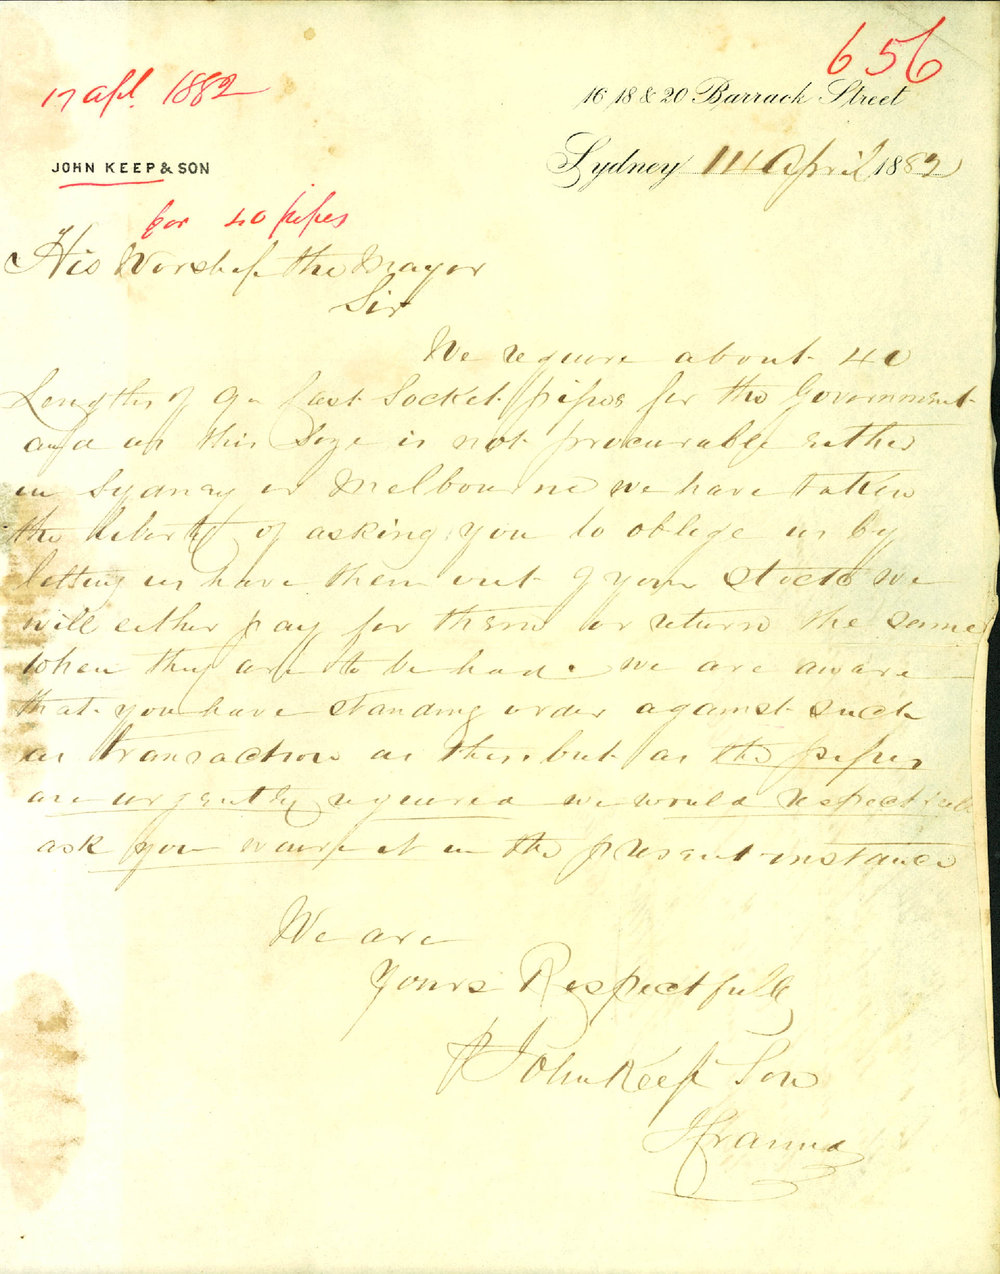 656
17 apl. 1882
16 18 & 20 Barrack Street
JOHN KEEP & SON
Sydney 14 April 1882
for 40 pipes
His Worship the Mayor
Sir
We require about 40
Lengths of 9in Cast Socket pipes for the Government
and as this Size is not procurable either
in Sydney or Melbourne we have taken
the liberty of asking you to oblige us by
letting us have them out of your stock we
will either pay for them or return the same
when they are to be had. we are aware
that you have standing order against such
a transaction as this. but as the pipes
are urgently required we would respectfully
ask you waive it in the present instance
We are
Yours Respectfully
P John Keep Son